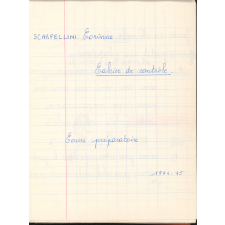 SCARPELLINI Corinne
Cahier de contrôle.
Cours préparatoire